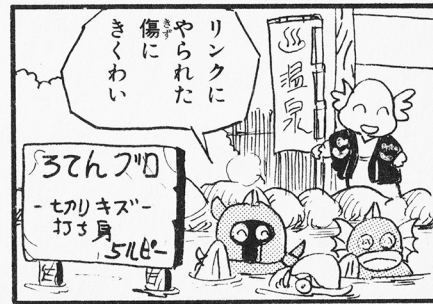 リンクに
やられた
傷に
きず
きくわい
温泉
ろてんブロ
-切りキズ-
打ち身
5ルピー